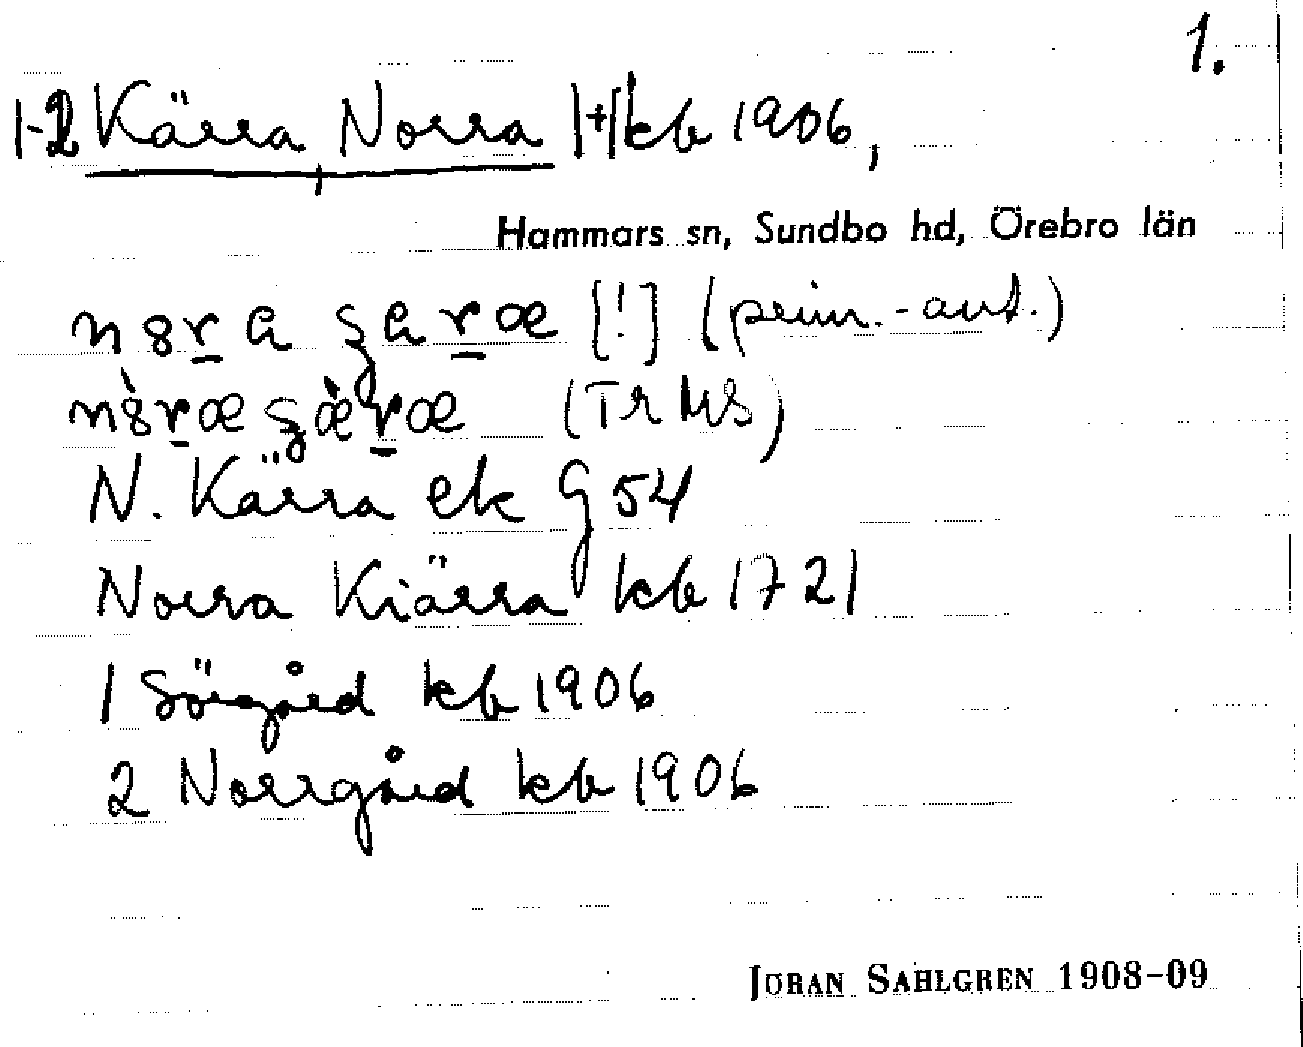 1.
1-2 Kärra, Norra |+| kb 1906,
Hammars sn, Sundbo hd, Örebro län
[!] (prim.-ant.)
(Tr MS)
N. Kärra ek G 54
Norra Kiärra kb 1721
1 Sörgård kb 1906
2 Norrgård kb 1906
JÖRAN SAHLGREN 1908-09